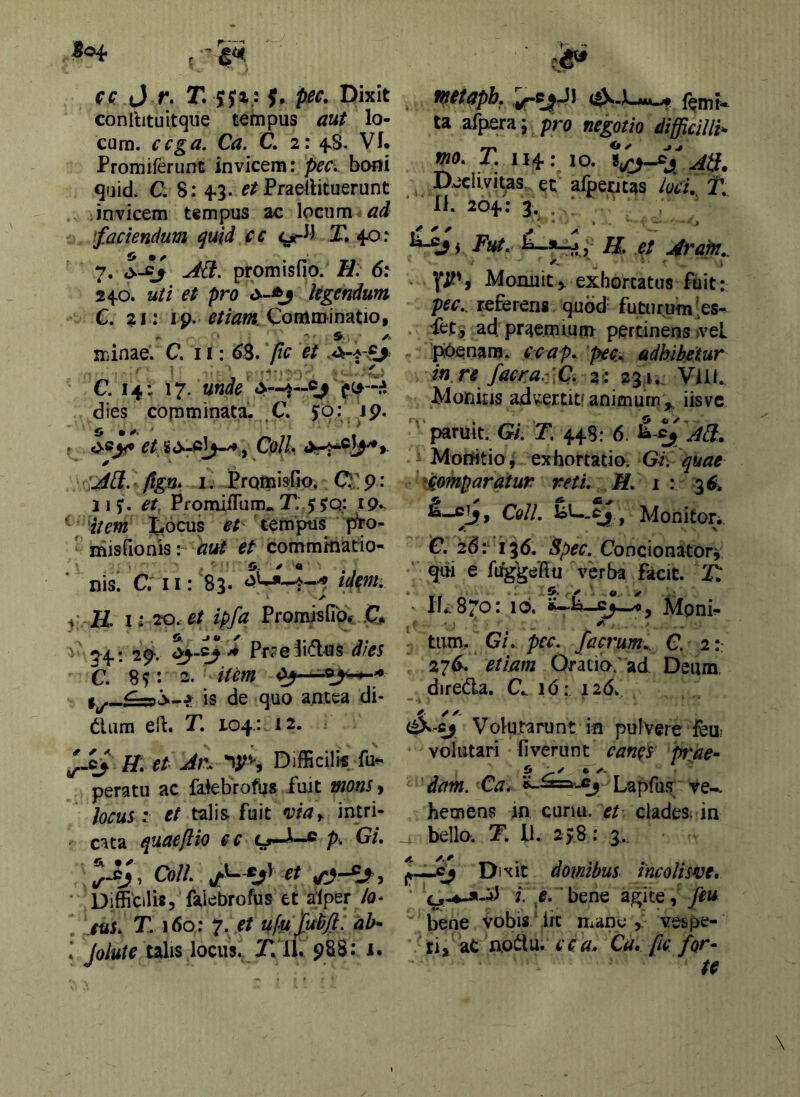 804 وع
cc ل r. T. 552: 5. pec. Dixit
constituitque tempus aut lo-
cum. c c g a. Ca. C. 2: 48. VI.
Promiserunt invicem: pec. boni
quid. C. 8: 43. et Praestituerunt
invicem tempus ac locum ad
faciendum quid cc الى T. 40:
7. وَعْدٌ Act. promissio. H. 6:
240. uti et pro legendum
C. 21: 19. etiam Comminatio,
minae. C. 11: 68. sic et وعيد
C. 14: 17. unde يوم وعيد
dies comminata. C. 50: 19.
et موعدة, Coll. مواعيد
Act. sign. 1. Promissio. C. 9:
115. et Promissum. T. 550: 19.
item Locus et tempus pro-
missionis: aut et comminatio-
nis. C. 11: 83. ميعاد idem.
H. 1: 20. et ipsa Promissio. C.
34: 29. موعود Praedictus dies
C. 85: 2. item
is de quo antea di-
ctum est. T. 104: 12.
وعر H. et Ar. Difficilis su-
peratu ac salebrosus fuit mons,
locus: et talis fuit via, intri-
cata quaestio c c على p. Gi.
وعر, Coll. اوعار et وعور,
Difficilis, salebrosus et asper lo-
cus. T. 160: 7. et usu subst. ab-
solute talis locus. T. II. 988: 1.
وع
metaph. semi-
ta aspera; pro negotio difficilli-
mo. T. 114: 10. وعورة Act.
Declivitas et asperitas loci. T.
II. 204: 3.
وعظ, Fut. يعظ, H. et Aram.
Monuit, exhortatus fuit:
pec. referens quod futurum es-
set, ad praemium pertinens vel
poenam. c c a p. pec. adhibetur
in re sacra. C. 2: 231. VIII.
Monitis advertit animum, iisve
paruit. Gi. T. 448: 6. وعظ Act.
Monitio, exhortatio. Gi. quae
comparatur reti. H. 1: 36.
واعظ, Coll. وعاظ, Monitor.
C. 26: 136. Spec. Concionator,
qui e suggestu verba facit. T.
II. 870: 10. موعظة, Moni-
tum. Gi. pec. sacrum. C. 2:
276. etiam Oratio, ad Deum
directa. C. 16: 126.
وعك Volutarunt in pulvere seu
volutari siverunt canes prae-
dam. Ca. وعكة Lapsus ve-
hemens in cursu. et clades in
bello. T. II. 258: 3.
وعم Dixit domibus incolisve.
i. e. bene agite, seu
bene vobis sit mane, vespe-
ri, ac noctu. c c a. Ca. sic for-
te